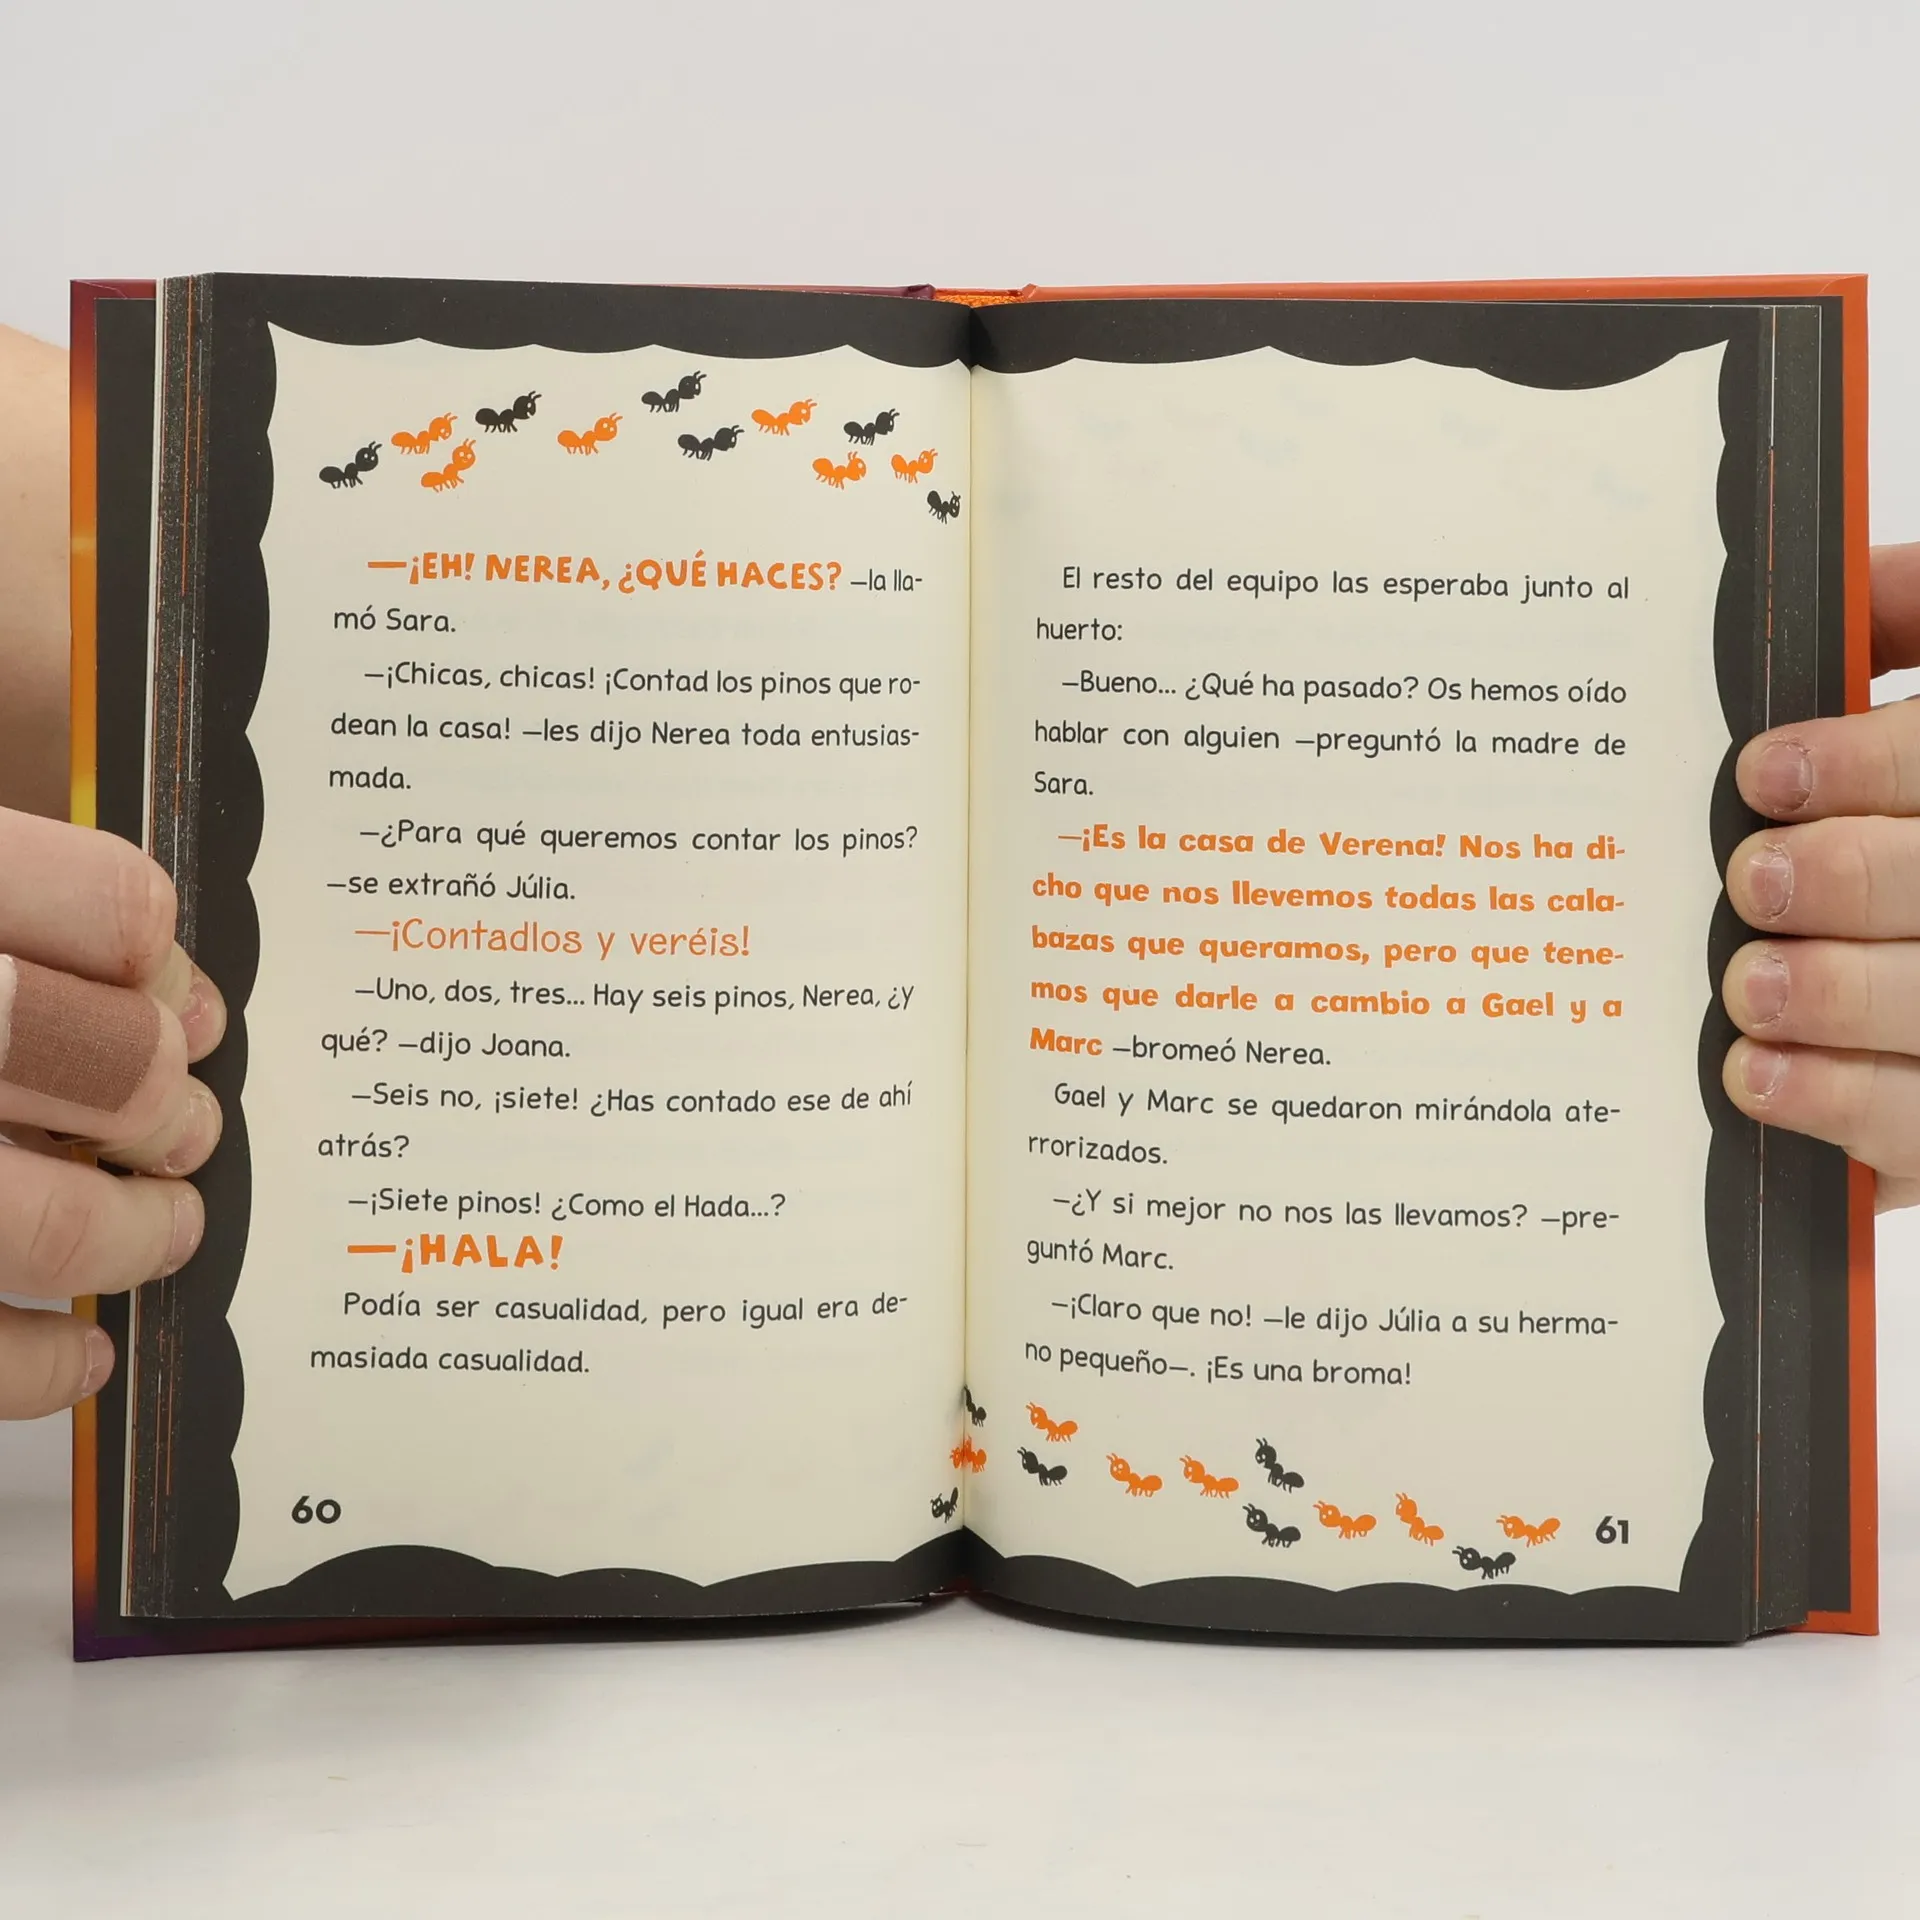 —¡EH! NEREA, ¿QUÉ HACES? —la lla-
mó Sara.
—¡Chicas, chicas! ¡Contad los pinos que ro-
dean la casa! —les dijo Nerea toda entusias-
mada.
—¿Para qué queremos contar los pinos?
—se extrañó Júlia.
—¡Contadlos y veréis!
—Uno, dos, tres... Hay seis pinos, Nerea, ¿y
qué? —dijo Joana.
—Seis no, ¡siete! ¿Has contado ese de ahí
atrás?
—¡Siete pinos! ¿Como el Hada...?
—¡HALA!
Podía ser casualidad, pero igual era de-
masiada casualidad.
60
El resto del equipo las esperaba junto al
huerto:
—Bueno... ¿Qué ha pasado? Os hemos oído
hablar con alguien —preguntó la madre de
Sara.
—¡Es la casa de Verena! Nos ha di-
cho que nos llevemos todas las cala-
bazas que queramos, pero que tene-
mos que darle a cambio a Gael y a
Marc —bromeó Nerea.
Gael y Marc se quedaron mirándola ate-
rrorizados.
—¿Y si mejor no nos las llevamos? —pre-
guntó Marc.
—¡Claro que no! —le dijo Júlia a su herma-
no pequeño—. ¡Es una broma!
61